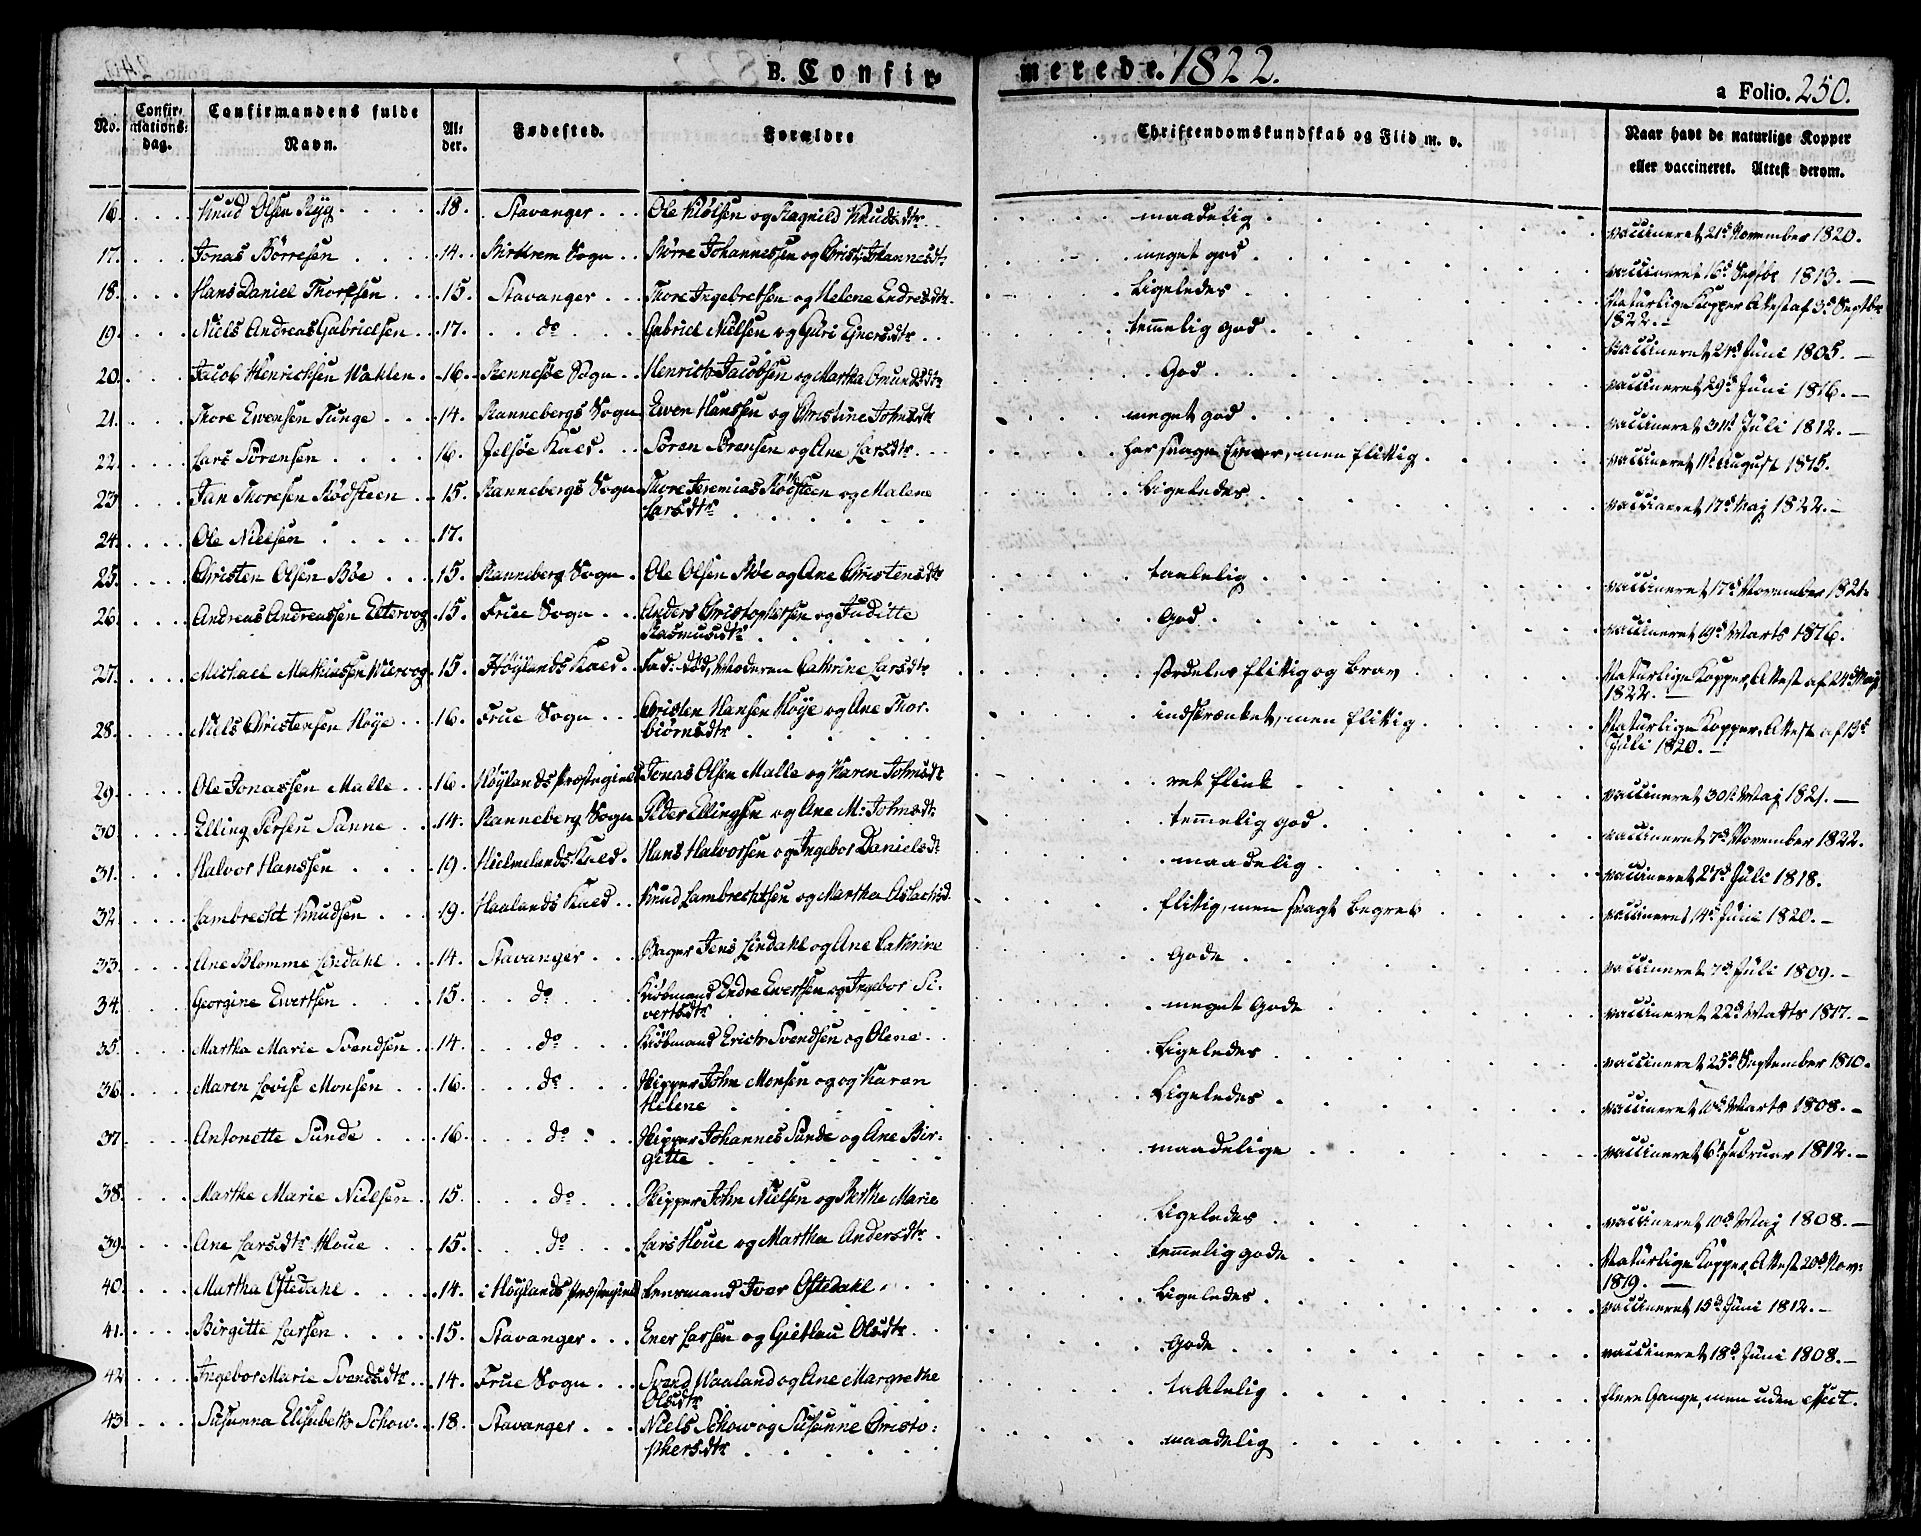 B. Confirmerede. 1822.
a Folio. 250.
No. Confirmationsdag. Confirmandens fulde Navn. Alder. Fødested. Forældre Christendomskundskab og Flid m. v. Naar havt de naturlige Kopper eller vaccineret. Attest derom.
16. Knud Olsen 18. Stavanger Ole Olsen og Ragnild Knudsdtr maadelig vaccineret 21d November 1820.
17. Jonas Börresen 14. Birkrem Sogn Börre Johannessen og meget god vaccineret 16d Septbr 1813.
18. Hans Daniel Thoresen 15. Stavanger Thore Ingebretsen og Helene Endresdtr Ligeledes Naturlige Kopper Attest af 3d Septbr
1822.
19. Niels Andreas Gabrielsen 17. do Gabriel Nielsen og Guri Ejnersdtr temelig god vaccineret 24d Juni 1805.
20. Jacob Henrichsen Wahlen 16. Rennesöe Sogn Henrich Jacobsen og Martha Omundsdtr God vaccineret 29d Juni 1816.
21. Thore Ewensen Tunge 14. Ranneberg Sogn Ewen Hanssen og Christine Johnsdtr meget god vaccineret 31d Juli 1812.
22. Lars Sörensen 16. Jelsöe Kald Sören Sörensen og Ane Larsdtr har svage Evner, men flittig vaccineret 11d August 1815.
23. Jan Thoresen Rödsteen 15. Rannebergs Sogn Thore Jeremias Rödsteen og Malene
Larsdtr Ligeledes vaccineret 17d Maj 1822.
24. Ole Nielsen 17.
25. Christen Olsen Böe 15. Ranneberg Sogn Ole Olsen Böe og Ane Christensdtr taalelig vaccineret 17d November 1821.
26. Andreas Andreassen 15. Frue Sogn Anders Christophersen og Juditte
Rasmusdtr God vaccineret 19d Marts 1816.
27. Michael Mathiassen 15. Höylands Kald Fad: död, Moderen Cathrine Larsdtr særdeles flittig og brav Naturlige Kopper, Attest af 24d Maj
1822.
28. Niels Christensen Höye 16. Frue Sogn Christen Hansen Höye og Ane Thor-
biörnsdtr indskrænket, men flittig Naturlige Kopper, Attest af 13d
Juli 1820.
29. Ole Jonassen Malle 16. Höylands Præstegield Jonas Olsen Malle og Karen Johnsdtr ret flink vaccineret 30d Maj 1821.
30. Elling Persen Sanne 14. Ranneberg Sogn Peder Ellingsen og Ane M: Johnsdtr temelig god vaccineret 7d November 1822.
31. Halvor Hanssen 19. Hielmelands Kald Hans Halvorsen og Ingebor Danielsdtr maadelig vaccineret 27d Juli 1818.
32. Lambrecht Knudsen 19. Haalands Kald Knud Lambrechtsen og Martha Aslachsd. flittig, men svagt begreb vaccineret 14d Juni 1820.
33. Ane Blomme Lindahl 14. Stavanger Bager Jens Lindahl og Ane Cathrine Gode vaccineret 7d Juli 1809.
34. Georgine Ewertsen 15. do Kiöbmand Endre Ewertsen og Ingebor Si-
vertsdtr meget Gode vaccineret 22d Marts 1817.
35. Martha Marie Svendsen 14. do Kiöbmand Erich Svendsen og Olene Ligeledes vaccineret 25d September 1810.
36. Maren Lovise Monsen 16. do Skipper John Monsen og og Karen
Helene Ligeledes vaccineret 10d Marts 1808.
37. Antonette Sunde 16. do Skipper Johannes Sunde og Ane Bir-
gitte maadelige vaccineret 6d Februar 1812.
38. Marthe Marie Nielsen 15. do Skipper John Nielsen og Berthe Marie Ligeledes vaccineret 10d Maj 1808.
39. Ane Larsdtr Houe 15. do Lars Houe og Martha Andersdtr temelig gode Naturlige Kopper, Attest 20d Nov:
1819.
40. Martha Oftedahl 14. i Höylands Præstegield Lensmand Ivar Oftedahl Ligeledes vaccineret 15d Juni 1812.
41. Birgitte Larsen 15. Stavanger Ener Larsen og Giertru Olsdtr Gode vaccineret 18d Juni 1808.
42. Ingebor Marie Svendsdtr 14. Frue Sogn Svend Waaland og Ane Margrethe
Olsdtr taalelig flere Gange, men uden effect.
43. Susanna Elisabeth Schow 18. Stavanger Niels Schow og Susanne Christo-
phersdtr maadelig